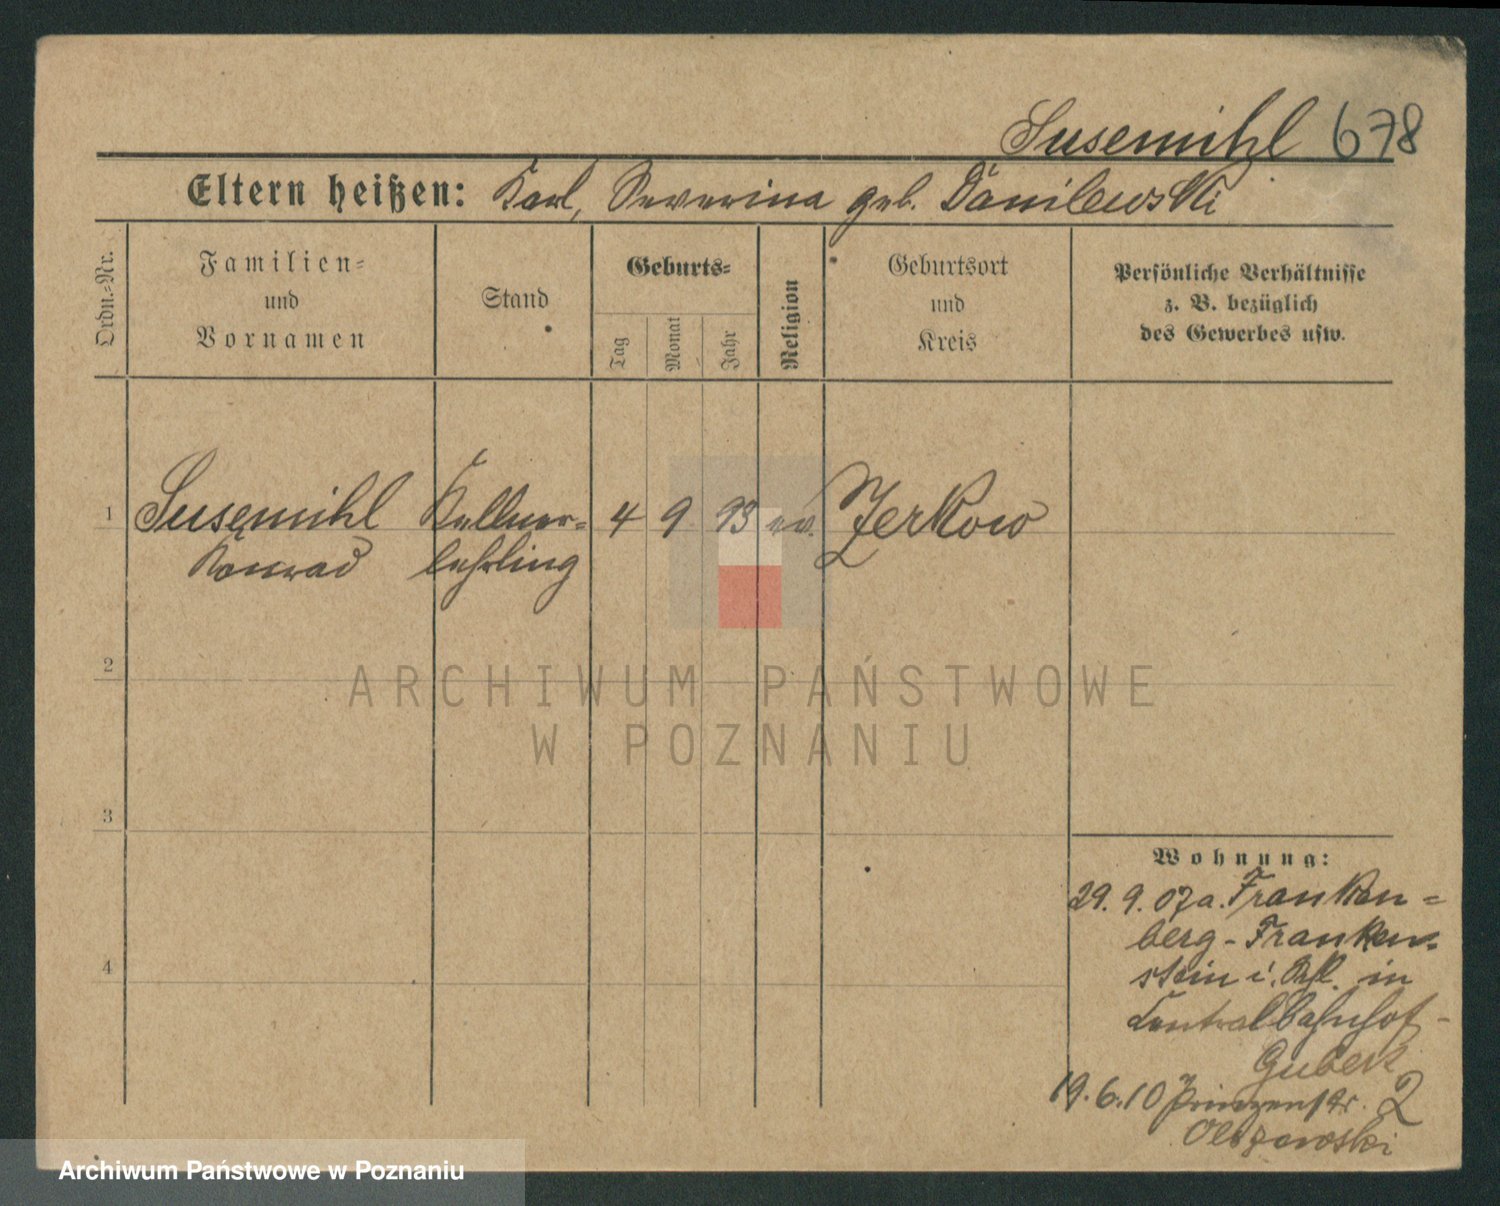 Susemihl 678
Eltern heißen: Karl, Severina geb. Danilewski
Ordn.-Nr.
Familien-
und
Vornamen
Stand
Geburts-
Tag
Monat
Jahr
Religion
Geburtsort
und
Kreis
Persönliche Verhältnisse
z. B. bezüglich
des Gewerbes usw.
1 Susemihl Kellner- 4 9 93 ev. Zerkow
Konrad lehrling
2
ARCHIWUM PAŃSTWOWE
W POZNANIU
3
4
Wohnung:
29. 9. 07 a. Franken-
berg-Franken-
stein i. Schl. in
Centralbahnhof-
19.6.10 Prinzenstr. 2
Archiwum Państwowe w Poznaniu